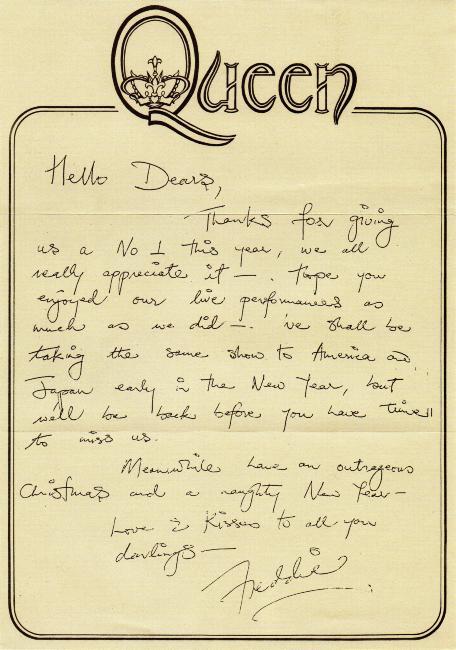 Queen
Hello Dears,
Thanks for giving
us a No 1 this year, we all
really appreciate it —. Hope you
enjoyed our live performances as
much as we did —. We shall be
taking the same show to America and
Japan early in the New Year, but
we'll be back before you have time
to miss us.
Meanwhile have an outrageous
Christmas and a naughty New Year —
Love & Kisses to all you
darlings —
Freddie